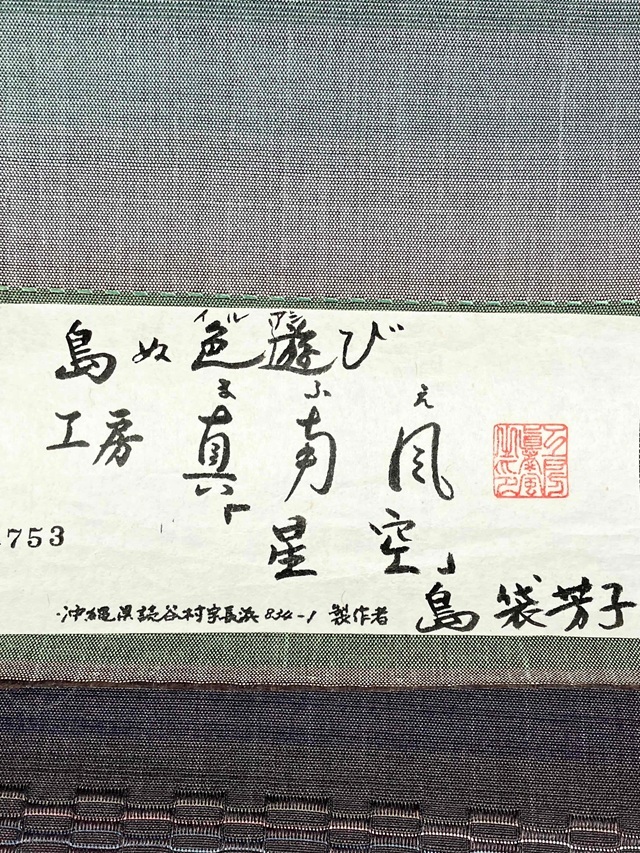 イル アシ
島ぬ色遊び
ま ふ え
工房 真南風
「星空」
753
沖縄県読谷村字長浜 製作者 島袋芳子